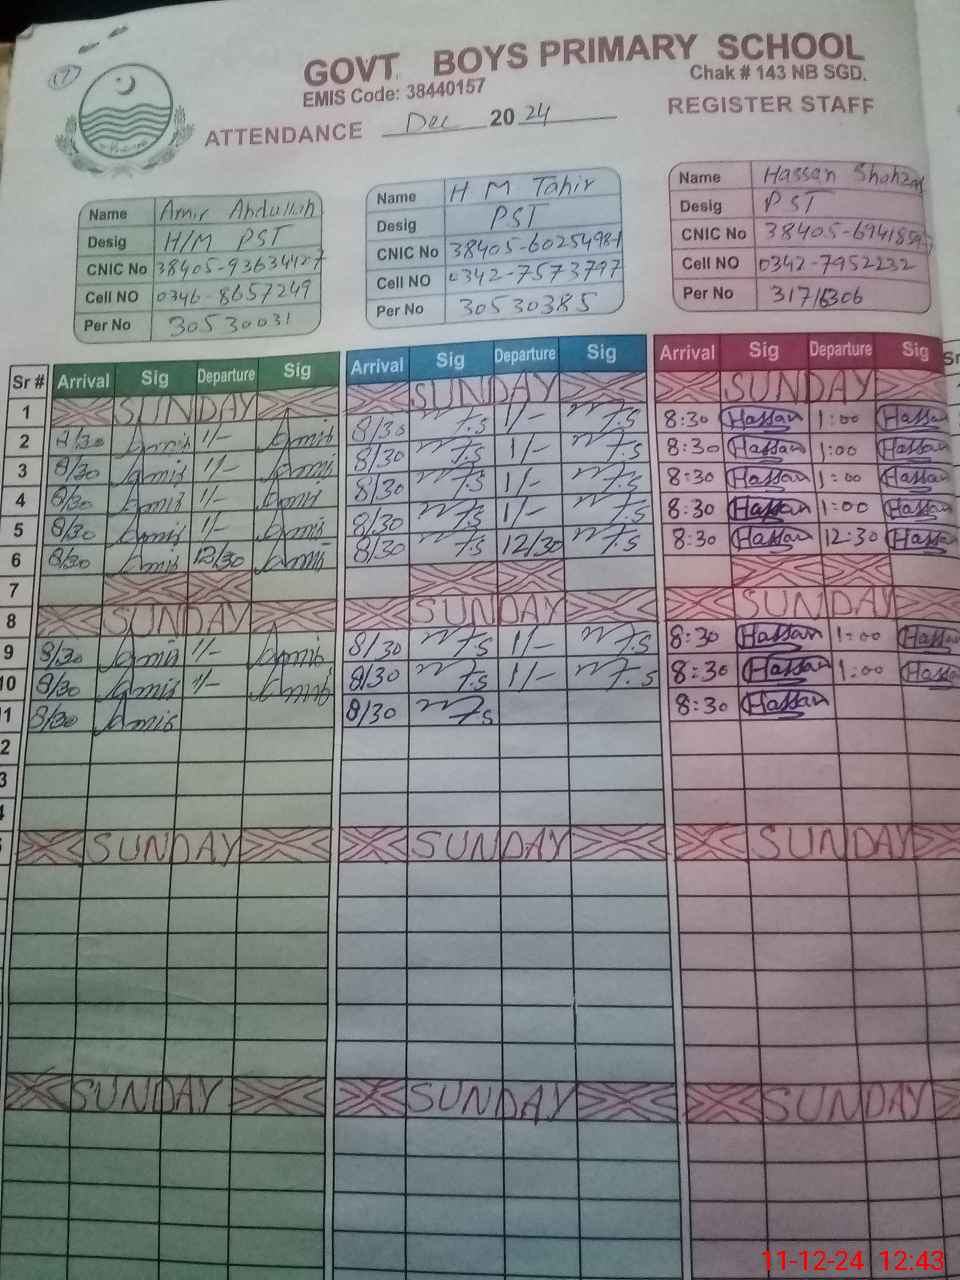 (7)
GOVT. BOYS PRIMARY SCHOOL
EMIS Code: 38440157 Chak # 143 NB SGD.
ATTENDANCE Dec 2024 REGISTER STAFF
Name Amir Abdullah
Desig H/M PST
CNIC No 38405-93634127
Cell NO 0346-8657249
Per No 30530031
Name H M Tahir
Desig PST
CNIC No 38405-6025498-1
Cell NO 0342-7573797
Per No 30530385
Name Hassan Shahzad
Desig PST
CNIC No
Cell NO 0342-7952232
Per No 31716306
Sr # Arrival Sig Departure Sig Arrival Sig Departure Sig Arrival Sig Departure Sig Sr
1 SUNDAY SUNDAY SUNDAY
2 8/30 Amir 1/- Amir 8/30 1/- 8:30 Hassan 1:00 Hassan
3 8/30 Amir 1/- Amir 8/30 1/- 8:30 Hassan 1:00 Hassan
4 8/30 Amir 1/- Amir 8/30 1/- 8:30 Hassan 1:00 Hassan
5 8/30 Amir 1/- Amir 8/30 1/- 8:30 Hassan 1:00 Hassan
6 8/30 Amir 12/30 Amir 8/30 12/30 8:30 Hassan 12:30 Hassan
7
8 SUNDAY SUNDAY SUNDAY
9 8/30 Amir 1/- Amir 8/30 1/- 8:30 Hassan 1:00 Hassan
10 8/30 Amir 1/- Amir 8/30 1/- 8:30 Hassan 1:00 Hassan
11 8/30 Amir 8/30 8:30 Hassan
2
3
4
SUNDAY SUNDAY SUNDAY
SUNDAY SUNDAY SUNDAY
11-12-24 12:43